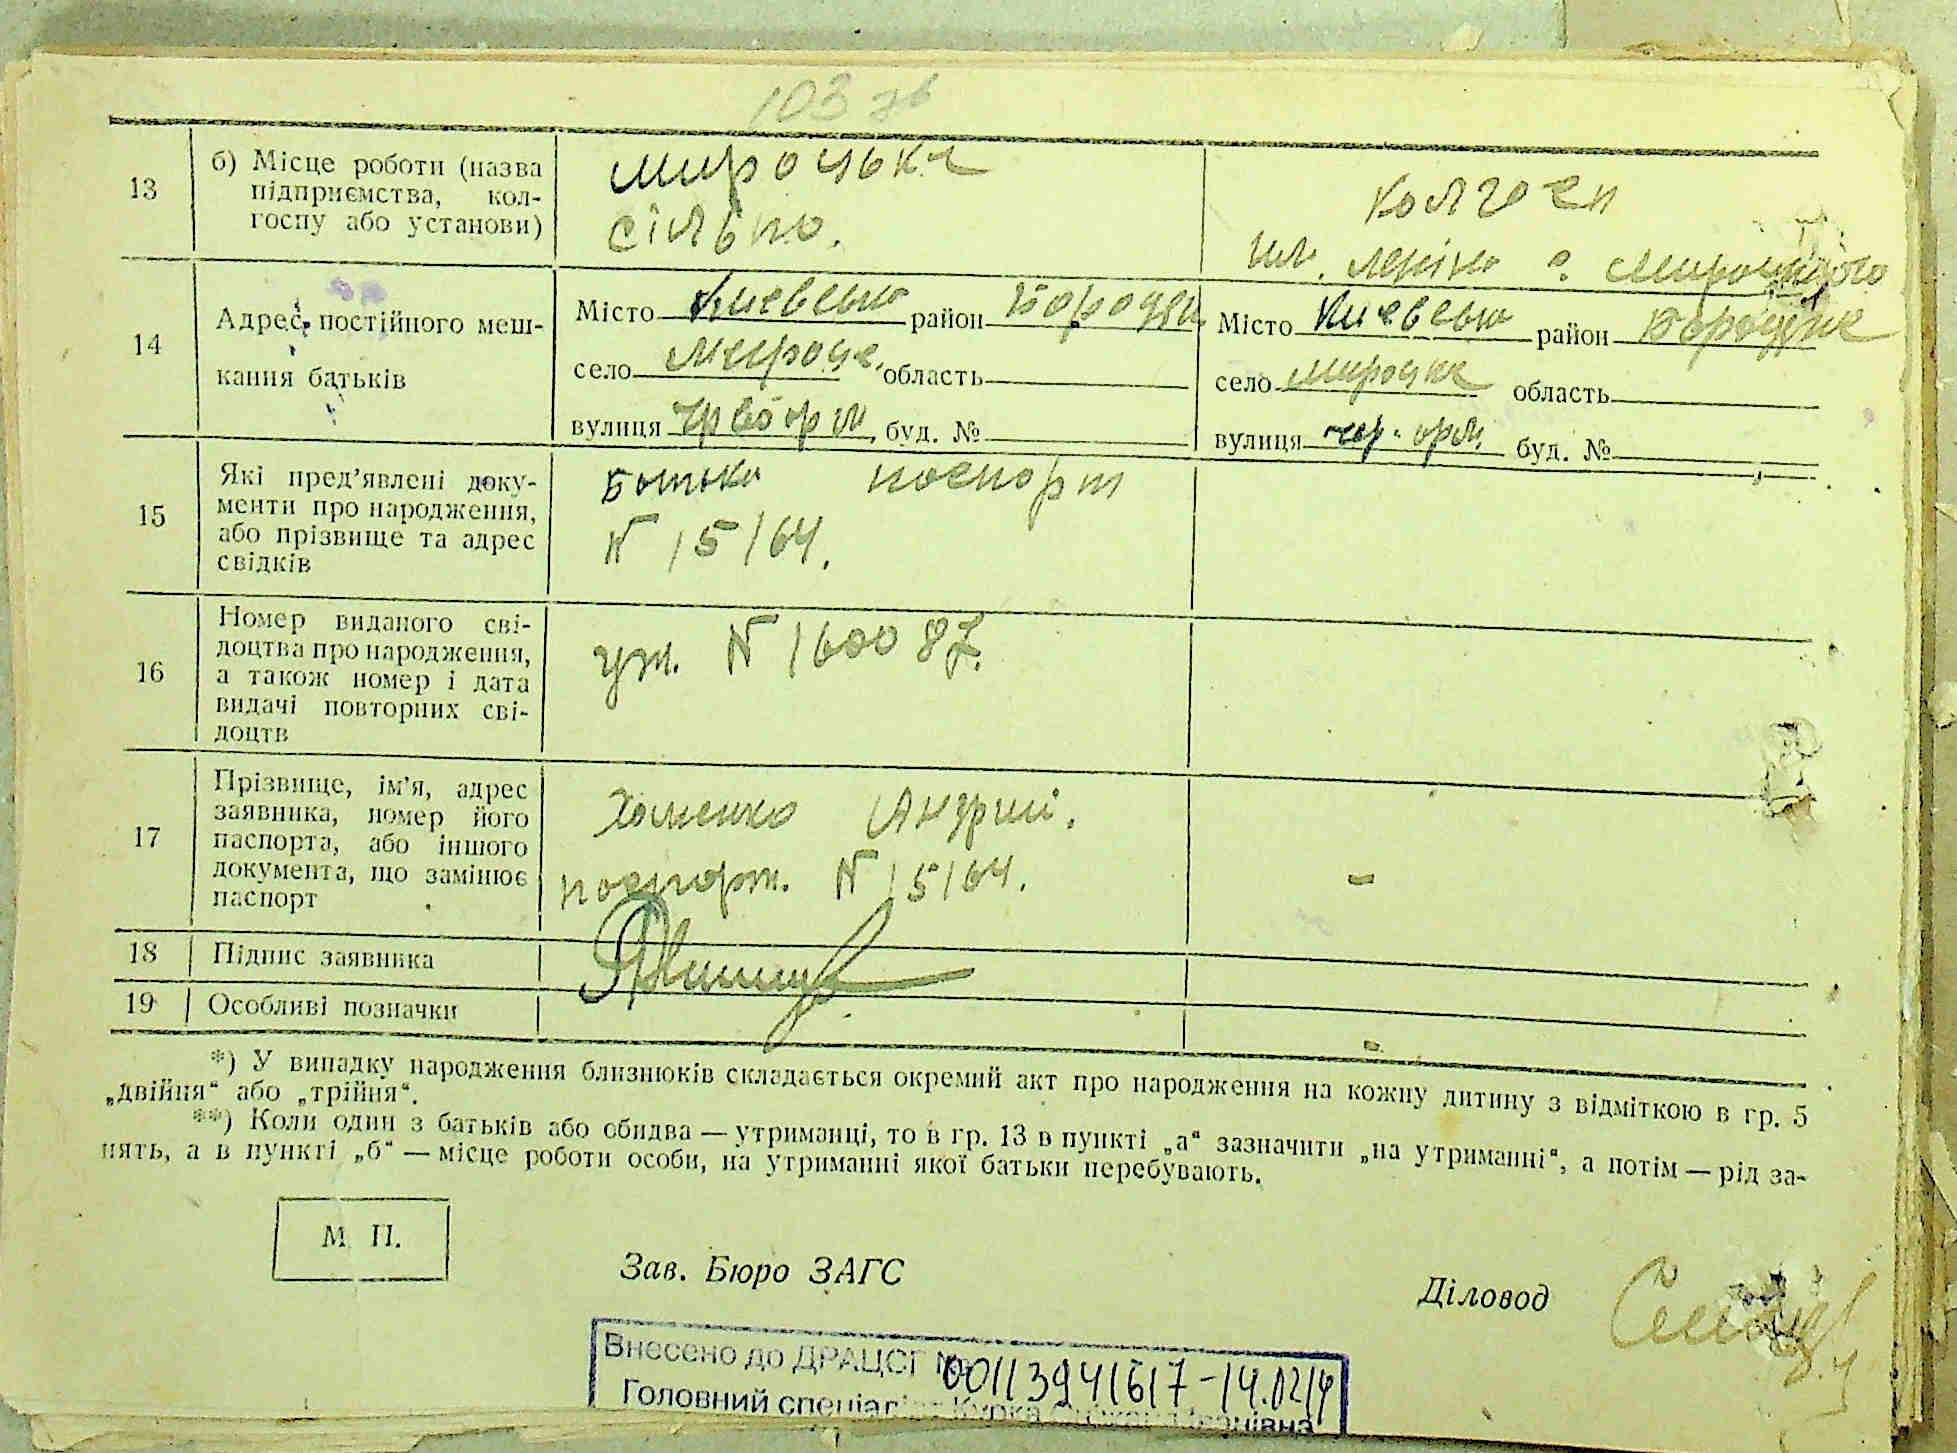 103 зв
13
б) Місце роботи (назва
підприємства, кол-
госпу або установи)
мироцька
сільпо.
Колгосп
им. Леніна с.
14
Адрес постійного меш-
кання батьків
Місто Киевська район Бородян.
село Мироце. область
вулиця буд. №
Місто Киевська район
село Мироцке область
вулиця чер. арм. буд. №
15
Які пред'явлені доку-
менти про народження,
або прізвище та адрес
свідків
Батька паспорт
N 15164.
16
Номер виданого сві-
доцтва про народження,
а також номер і дата
видачі повторних сві-
доцтв
N 160087.
17
Прізвище, ім'я, адрес
заявника, номер його
паспорта, або іншого
документа, що замінює
паспорт
Хоменко Андрий.
паспорт. N 15164.
18
Підпис заявника
19
Особливі позначки
*) У випадку народження близнюків складається окремий акт про народження на кожну дитину з відміткою в гр. 5
„двійня“ або „трійня“.
**) Коли один з батьків або обидва — утриманці, то в гр. 13 в пункті „а“ зазначити „на утриманні“, а потім — рід за-
нять, а в пункті „б“ — місце роботи особи, на утриманні якої батьки перебувають.
М П.
Зав. Бюро ЗАГС
Діловод
Внесено до ДРАЦСГ № 00113941617-14.02.14
Головний спеціаліст Курка